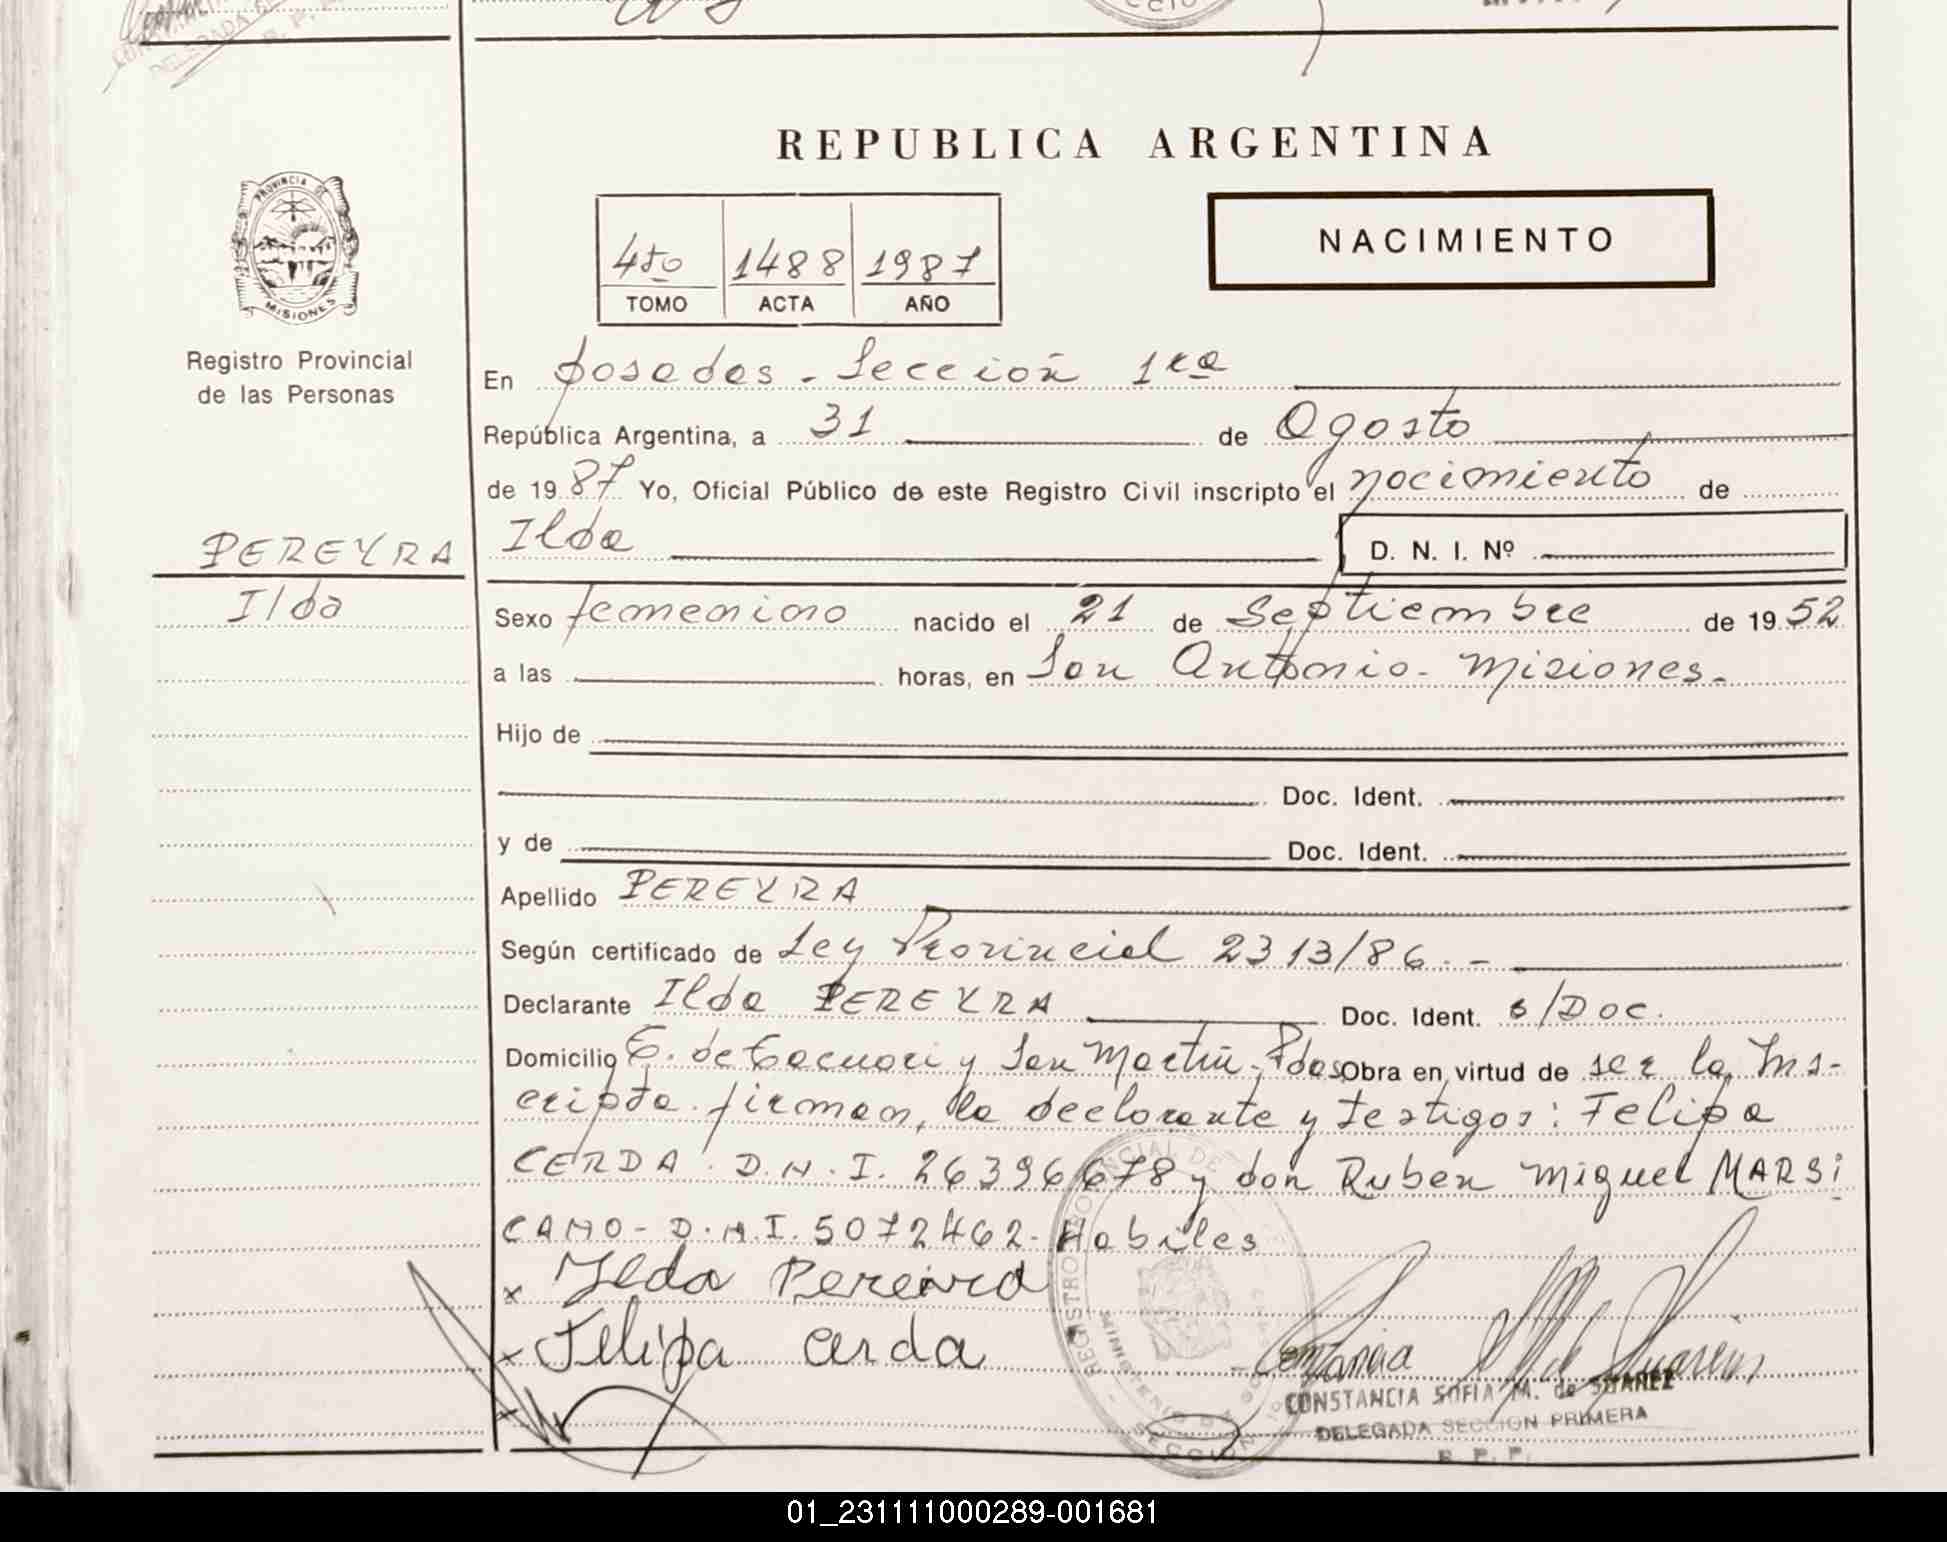 REPUBLICA ARGENTINA
PROVINCIA DE
MISIONES
Registro Provincial
de las Personas
4to 1488 1987
TOMO ACTA AÑO
NACIMIENTO
En Posadas - Sección 1ra
República Argentina, a 31 de Agosto
de 1987 Yo, Oficial Público de este Registro Civil inscripto el nacimiento de
PEREYRA
Ilda
Ilda D. N. I. Nº
Sexo femenino nacido el 21 de Septiembre de 1952
a las horas, en San Antonio - Misiones.
Hijo de
Doc. Ident.
y de Doc. Ident.
Apellido PEREYRA
Según certificado de Ley Provincial 2313/86. -
Declarante Ilda PEREYRA Doc. Ident. s/Doc.
Domicilio y San Martín - Pdas Obra en virtud de ser la Ins-
cripta. firman, la declarante y testigos: Felipa
CERDA. D.N.I. 26396678 y don Ruben Miguel MARSI
CANO - D.N.I. 5072462 - Habiles
x Ilda Pereira
x Felipa Cerda
x
CONSTANCIA SOFIA M. de SUAREZ
DELEGADA SECCION PRIMERA
R. P. P.
01_231111000289-001681